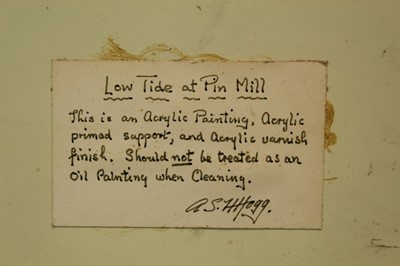 Low Tide at Pin Mill
This is an Acrylic Painting, Acrylic
primed support, and Acrylic varnish
finish. Should not be treated as an
Oil Painting when Cleaning.
A.S. Hogg.